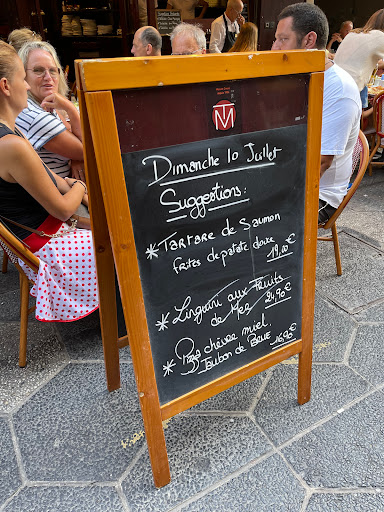 TM
Dimanche 10 Juillet
Suggestions:
* Tartare de Saumon
frites de patate douce
19,00 €
* Linguini aux Fruits
de Mer 24,90 €
* Pizza chèvre miel
Jambon de Bayonne 16,90 €